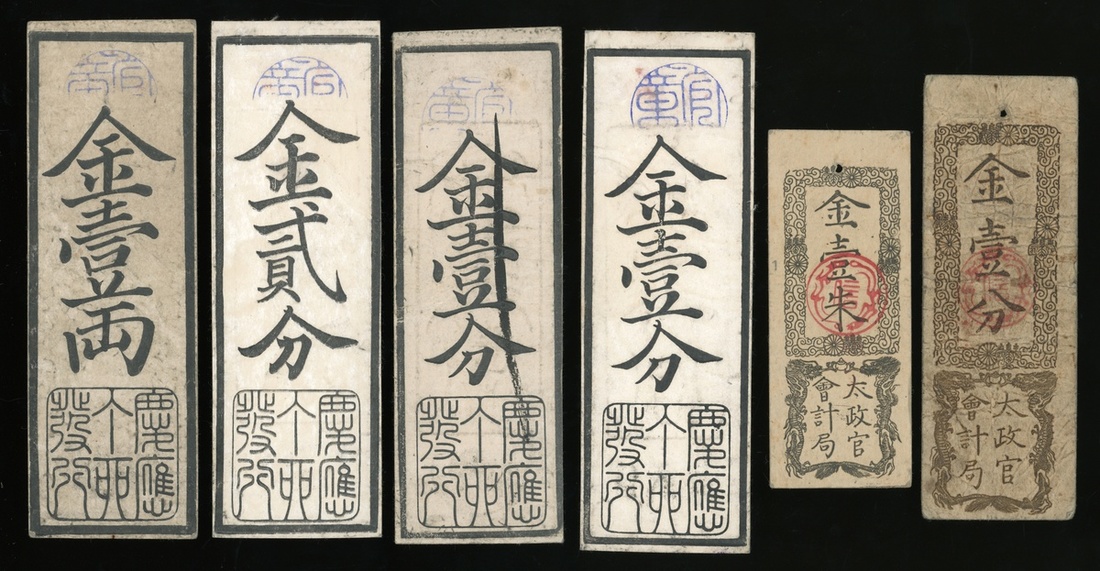 金壹両
慶應
丁卯
發行
金貳分
慶應
丁卯
發行
金壹分
慶應
丁卯
發行
金壹分
慶應
丁卯
發行
金壹朱
太政官
會計局
金壹分
太政官
會計局